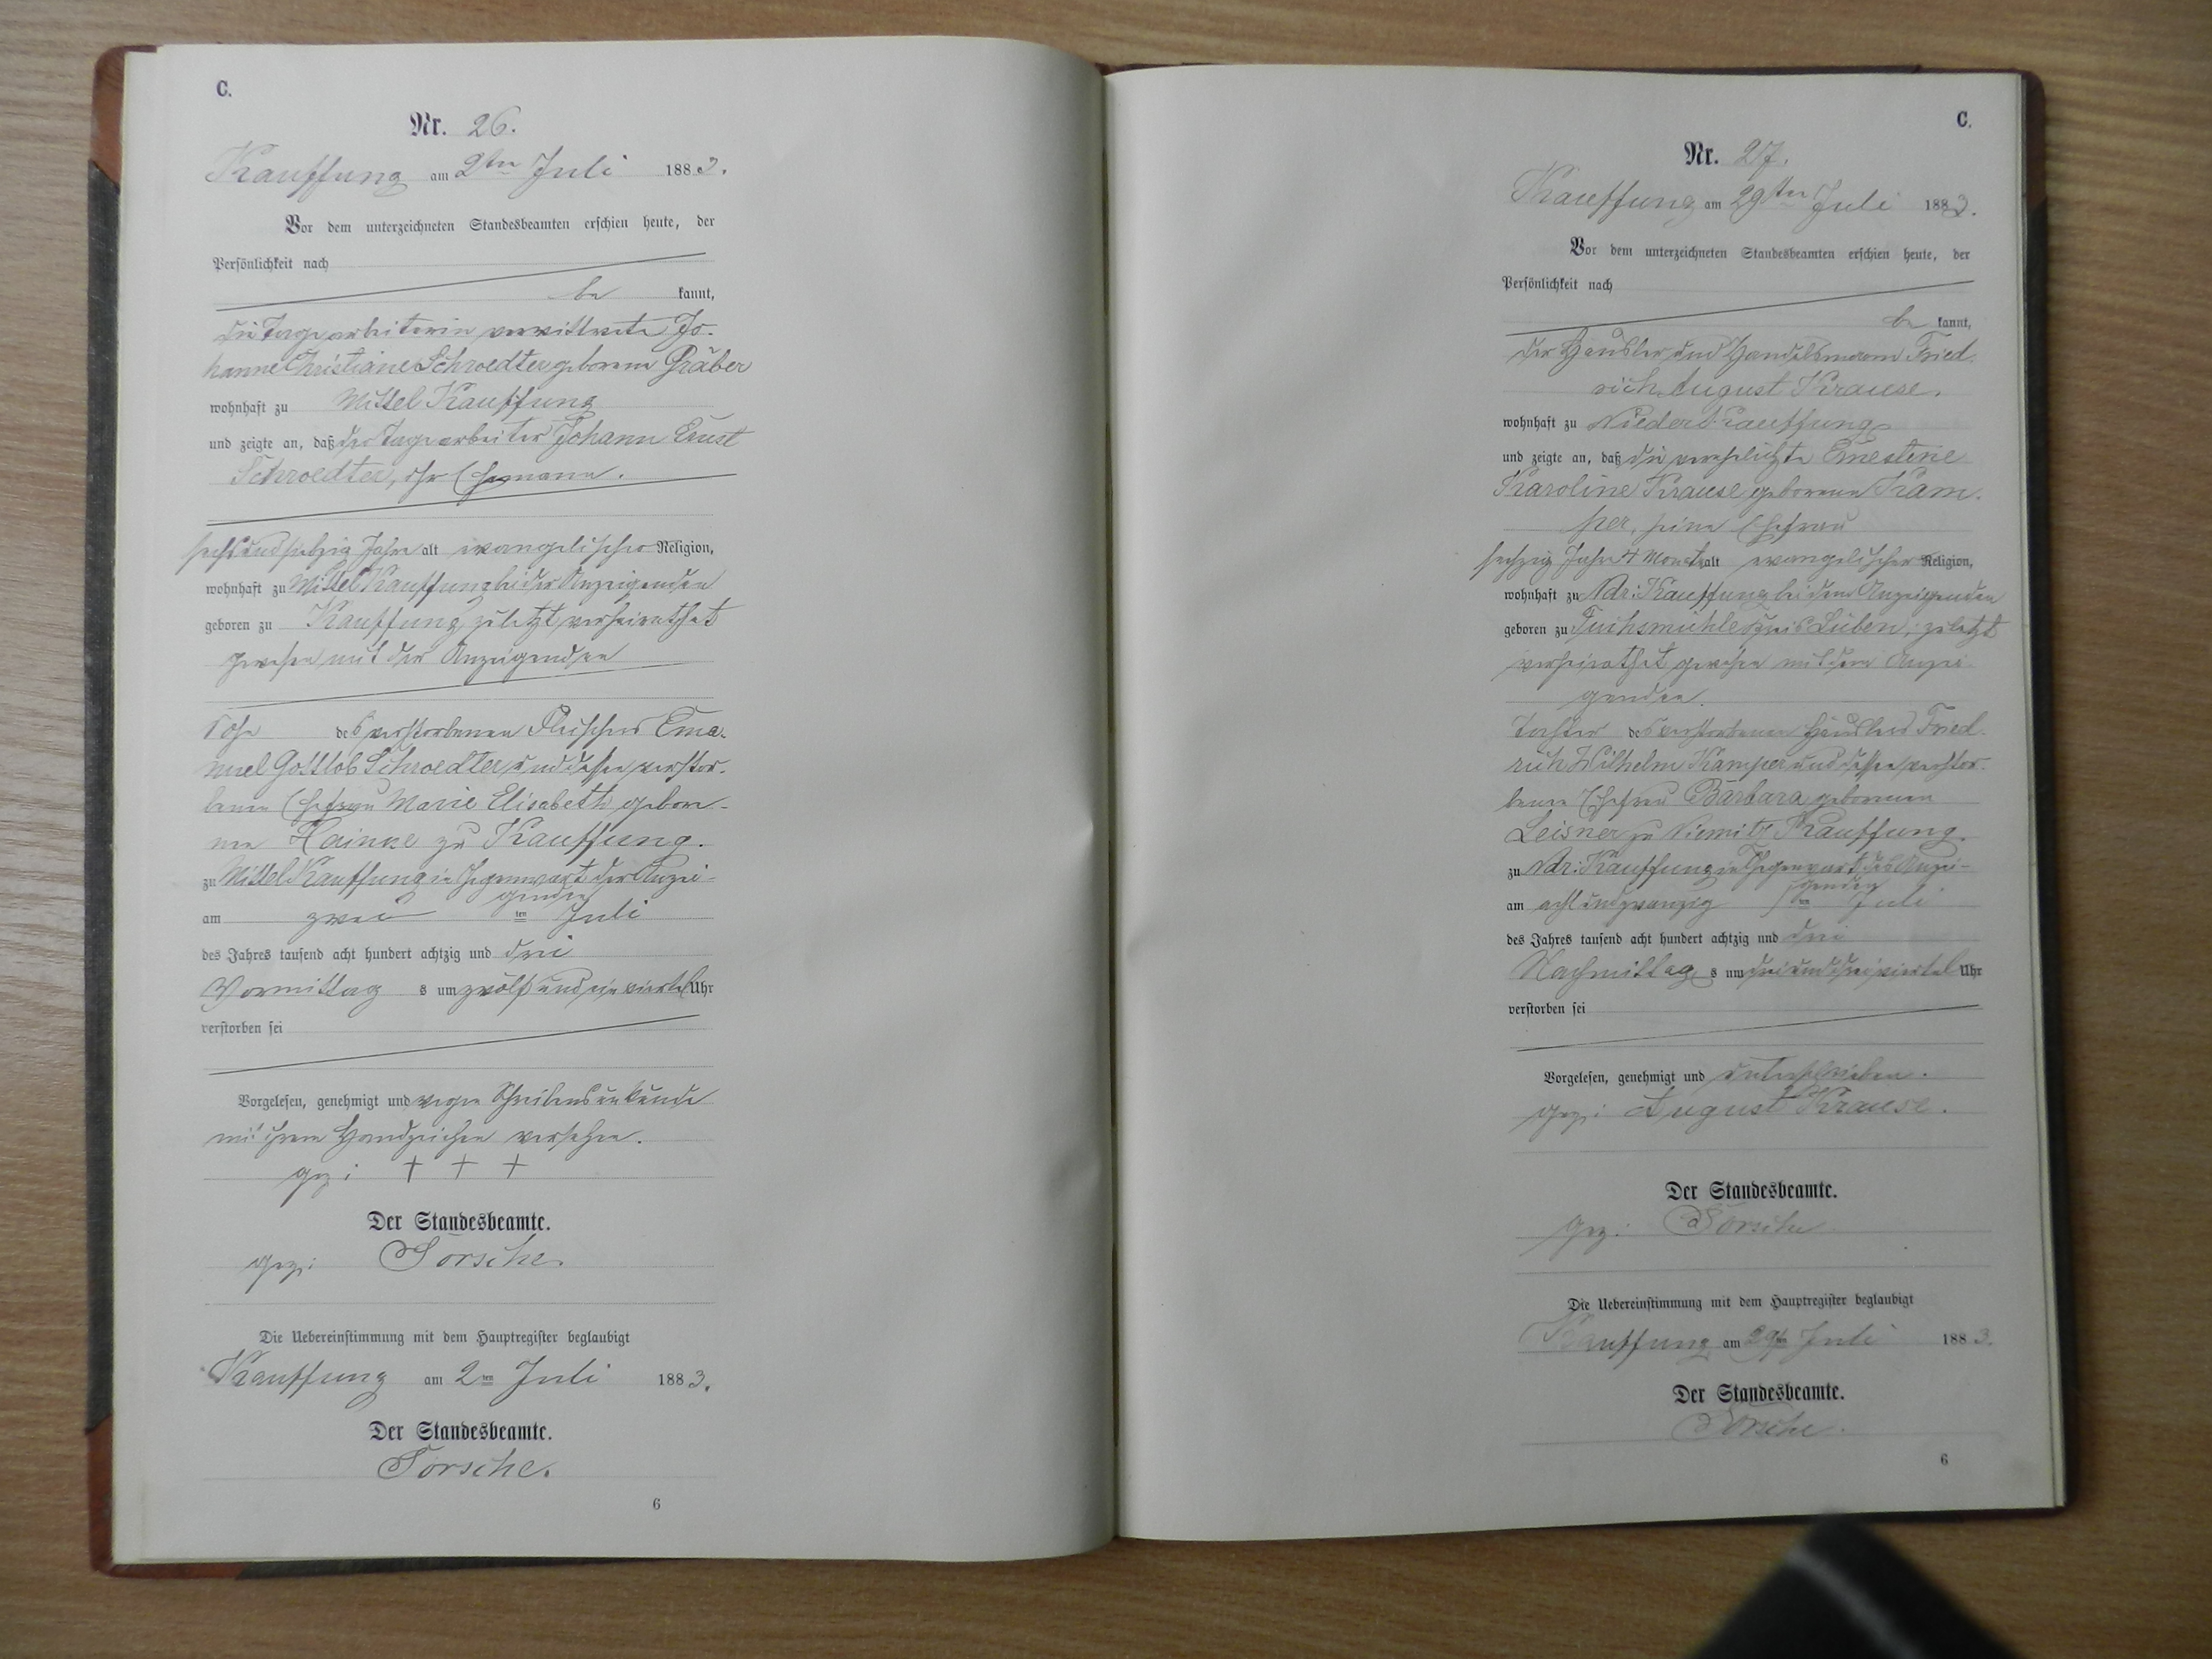 C.
Nr. 26.
Kauffung am 2ten Juli 1883.
Vor dem unterzeichneten Standesbeamten erschien heute, der
Persönlichkeit nach
be kannt,
die Tagearbeiterin verwittwete Jo-
hanne Christiane Schroedter geborene Gräber
wohnhaft zu Mittel Kauffung
und zeigte an, daß der Tagearbeiter Johann Ernst
Schroedter, ihr Ehemann.
sechs und siebzig Jahre alt evangelischer Religion,
wohnhaft zu Mittel Kauffung bei der Anzeigenden
geboren zu Kauffung, zuletzt verheirathet
gewesen mit der Anzeigenden
Sohn des verstorbenen Fleischers Ema-
nuel Gottlob Schroedter und dessen verstor-
benen Ehefrau Marie Elisabeth gebore-
nen zu Kauffung.
zu Mittel Kauffung in Gegenwart der Anzei-
genden
am zwei ten Juli
des Jahres tausend acht hundert achtzig und drei
Vormittag s um zwölf und ein viertel Uhr
verstorben sei
Vorgelesen, genehmigt und wegen Schreibensunkunde
mit ihrem Handzeichen versehen.
gez: + + +
Der Standesbeamte.
gez: Torsche.
Die Uebereinstimmung mit dem Hauptregister beglaubigt
Kauffung am 2ten Juli 1883.
Der Standesbeamte.
Torsche.
6
C.
Nr. 27.
Kauffung am 29ten Juli 1883.
Vor dem unterzeichneten Standesbeamten erschien heute, der
Persönlichkeit nach
be kannt,
der Häusler und Handelsmann Fried-
rich August Krause.
wohnhaft zu Nieder Kauffung
und zeigte an, daß die verehelichte Ernestine
Karoline Krause geborene Kam-
per, seine Ehefrau
sechzig Jahre 4 Monate alt evangelischer Religion,
wohnhaft zu Ndr: Kauffung bei dem Anzeigenden
geboren zu Fuchsmühle Kreis Lüben, zuletzt
verheirathet gewesen mit dem Anzei-
genden.
Tochter des verstorbenen Häuslers Fried-
rich Wilhelm Kamper und dessen verstor-
benen Ehefrau Barbara geborenen
Leisner zu Kauffung.
zu Ndr: Kauffung in Gegenwart des Anzei-
genden
am acht und zwanzig ten Juli
des Jahres tausend acht hundert achtzig und drei
Nachmittag s um drei und drei viertel Uhr
verstorben sei
Vorgelesen, genehmigt und unterschrieben.
gez: August Krause.
Der Standesbeamte.
gez: Torsche
Die Uebereinstimmung mit dem Hauptregister beglaubigt
Kauffung am 29ten Juli 1883.
Der Standesbeamte.
Torsche.
6